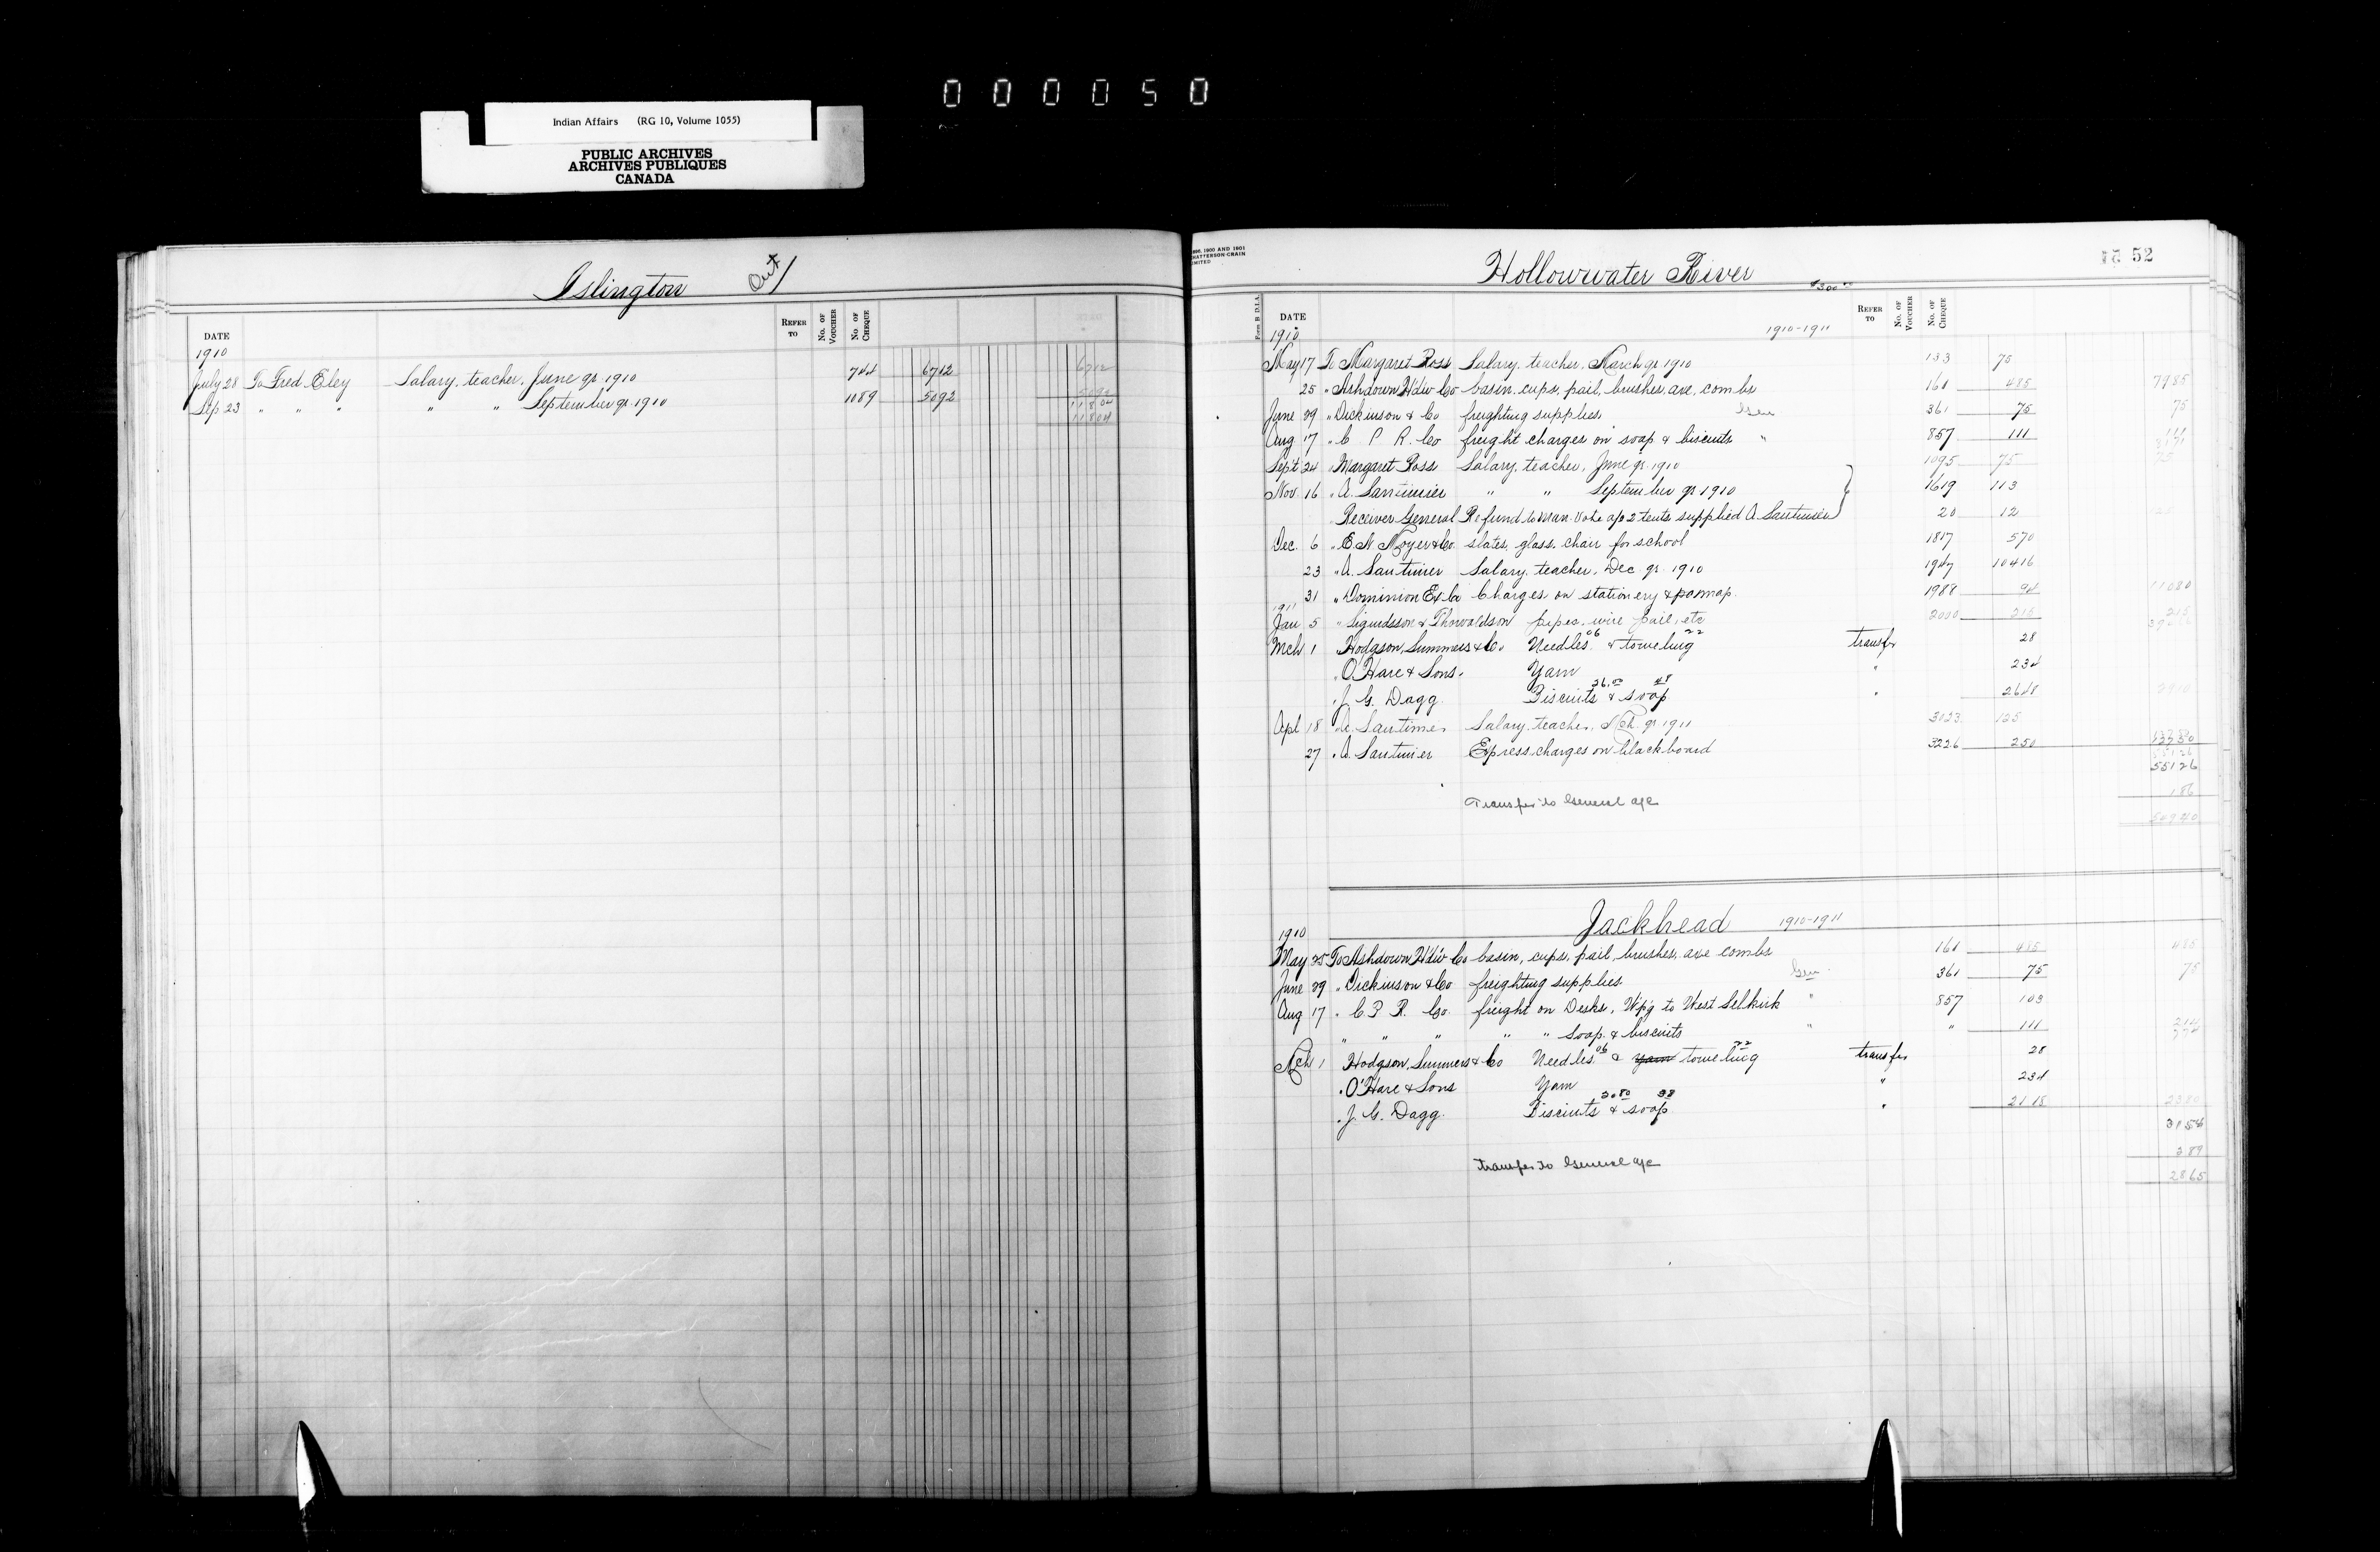 000050
Indian Affairs (RG 10, Volume 1055)
PUBLIC ARCHIVES
ARCHIVES PUBLIQUES
CANADA
Islington Out
DATE REFER TO No. OF VOUCHER No. OF CHEQUE
1910
July 28 To Fred Eley Salary, teacher, June qr 1910 744 6712 6712
Sep 23 " " " " " September qr 1910 1189 5092 5092
11804
11804
Hollowwater River
52
$300
Form B D.I.A. DATE REFER TO No. OF VOUCHER No. OF CHEQUE
1910 1910-1911
May 17 To Margaret Ross Salary, teacher, March qr 1910 133 75
25 " Ashdown Hdw Co basin, cups, pail, brushes, axe, combs 161 485 7985
June 29 " Dickinson & Co freighting supplies Gen 361 75 75
Aug 17 " C P R. Co freight charges on soap & biscuits " 857 111 111
Sept 24 " Margaret Ross Salary, teacher, June qr 1910 1095 75 75
Nov 16 " A. Santimier " " September qr 1910 1619 113
Receiver General Refund to Man. Vote a/c 2 tents supplied A Santimier 20 12
Dec. 6 " E N Moyer & Co. slates, glass, chair for school 1817 570
23 " A. Santimier Salary, teacher, Dec. qr. 1910 1947 10416
31 " Dominion Ex Co Charges on stationery & map 1988 94 11080
1911
Jan 5 " Sigurdsson & Thorvaldson pipes, wire pail, etc 2000 215 215
Mch 1 " Hodgson, Summers & Co. Needles 06 & toweling 22 transfer 28
" O'Hare & Sons. Yarn " 234
" J. G. Dagg. Biscuits 26.00 & soap 48 " 2648 2910
Apl 18 " A. Santimer Salary, teacher, Mch. qr. 1911 3023 125
27 " A. Santimier Express charges on blackboard 3226 250
55126
Transfer to General a/c 186
Jackhead 1910-1911
1910
May 25 To Ashdown Hdw Co basin, cups, pail, brushes, axe combs 161 485 485
June 29 " Dickinson & Co freighting supplies Gen 361 75 75
Aug 17 " C. P. R. Co. freight on Desks, Wp'g to West Selkirk " 857 103
" " " " " Soap & biscuits " " 111 214
Mch 1 Hodgson, Summers & Co Needles 06 & yarn toweling 22 transfer 28
" O'Hare & Sons Yarn " 234
" J. G. Dagg. Biscuits 20.80 & soap 38 " 2118 2380
3154
transfer to General a/c 289
2865